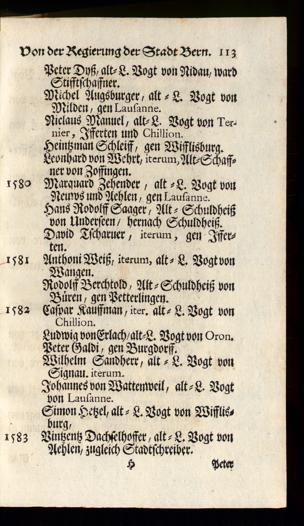 Von der Regierung der Stadt Bern. 113
Peter Dyß, alt-L. Vogt von Nidau, ward
Stifftschaffner.
Michel Augsburger, alt-L. Vogt von
Milden, gen Lausanne.
Niclaus Manuel, alt-L. Vogt von Ter-
nier, Ifferten und Chillion.
Heintzman Schleiff, gen Wifflisburg.
Leonhard von Wehrt, iterum, Alt-Schaff-
ner von Zoffingen.
1580 Marquard Zehender, alt-L. Vogt von
Neuws und Aehlen, gen Lausanne.
Hans Rodolff Saager, Alt-Schuldheiß
von Underseen / hernach Schuldheiß.
David Tscharner, iterum, gen Iffer-
ten.
1581 Anthoni Weiß, iterum, alt-L. Vogt von
Wangen.
Rodolff Berchtold, Alt-Schuldheiß von
Büren, gen Petterlingen.
1582 Caspar Kauffman, iter. alt-L. Vogt von
Chillion.
Ludwig von Erlach/alt-L. Vogt von Oron.
Peter Galdi, gen Burgdorff.
Wilhelm Sandherr, alt-L. Vogt von
Signau. iterum.
Johannes von Wattenweil, alt-L. Vogt
von Lausanne.
Simon Hetzel, alt-L. Vogt von Wifflis-
burg,
1583 Vintzentz Dachselhoffer, alt-L. Vogt von
Aehlen, zugleich Stadtschreiber.
H Peter